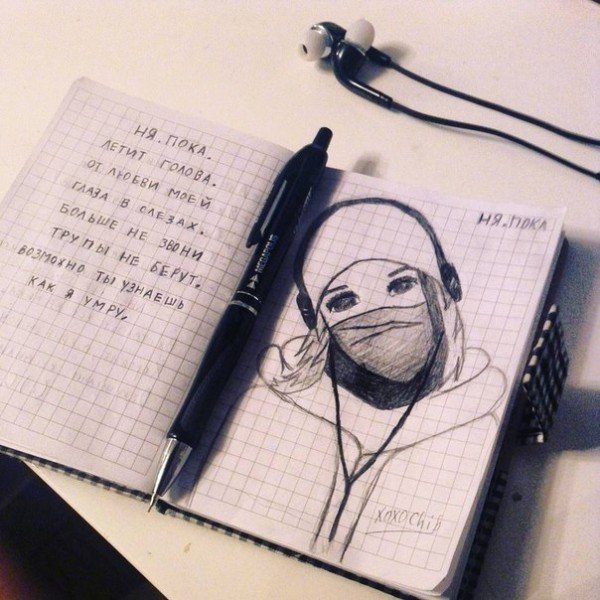 НЯ.ПОКА.
ЛЕТИТ ГОЛОВА.
ОТ ЛЮБВИ МОЕЙ
ГЛАЗА В СЛЕЗАХ.
БОЛЬШЕ НЕ ЗВОНИ
ТРУПЫ НЕ БЕРУТ.
ВОЗМОХНО ТЫ УЗНАЕШЬ
КАК Я УМРУ.
НЯ.ПОКА
xoxo chip